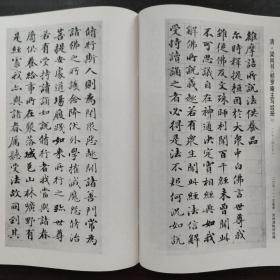 維摩詰所說法供養品
尔時釋提桓因於大眾中白佛言世尊我
雖從佛及文殊師利聞百千經未曾聞此
不可思議自在神通決定實相經典如我
解佛所說義趣若有眾生聞此經法信解
受持讀誦之者必得是法不疑何況如說
修行斯人則為閉眾惡趣開諸善門常為
諸佛之所護念降伏外學摧滅魔怨修治
菩提安處道場履踐如來所行之跡世尊
若有受持讀誦如說修行者我當與諸眷
屬供養給事所在聚落城邑山林曠野有
是經處我亦與諸眷屬聽受法故同到其
清